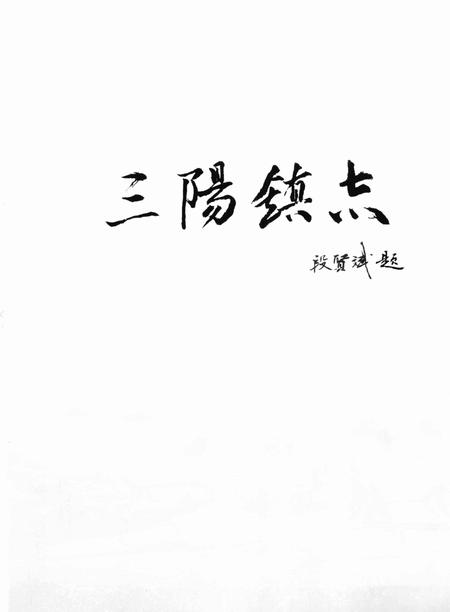 三陽鎮志
段賢斌題